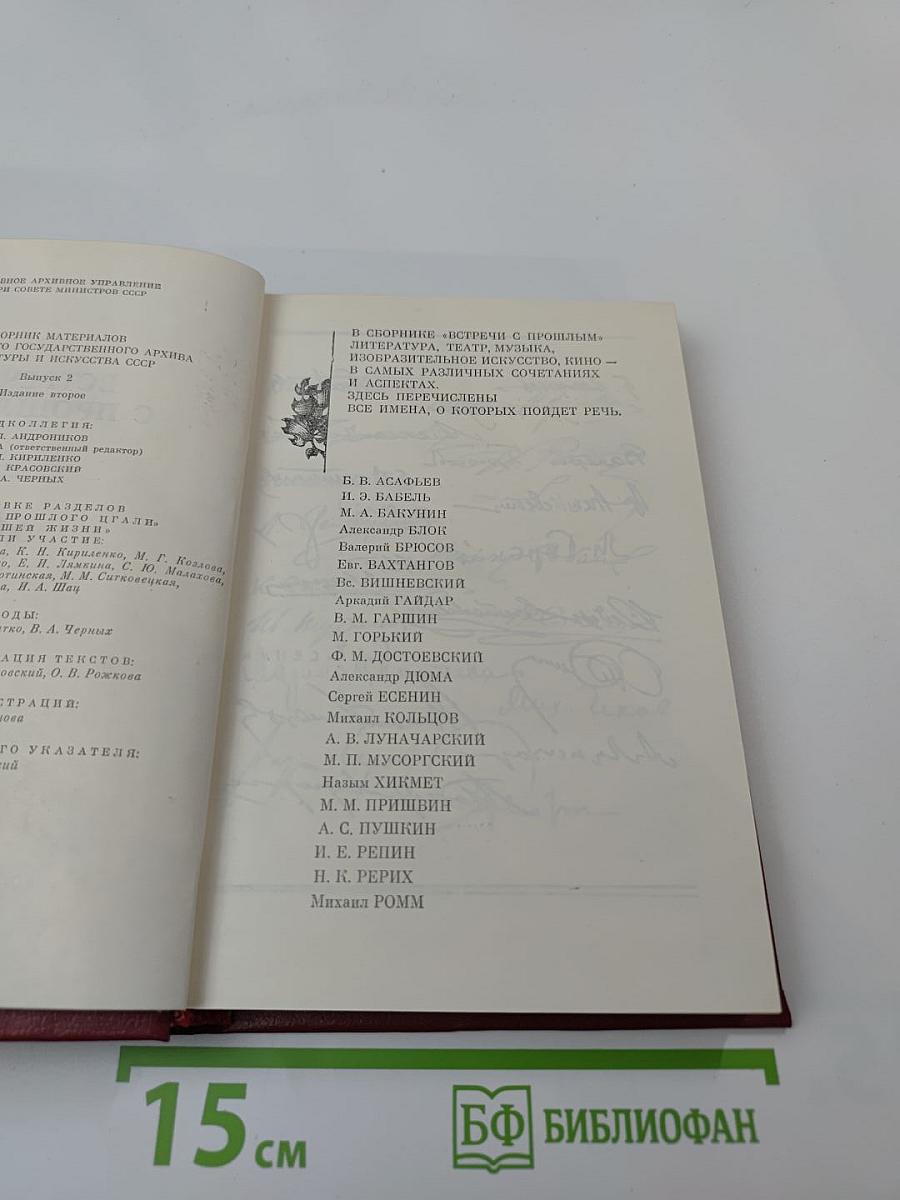 ВНОЕ АРХИВНОЕ УПРАВЛЕНИЕ
РИ СОВЕТЕ МИНИСТРОВ СССР
ОРНИК МАТЕРИАЛОВ
ГО ГОСУДАРСТВЕННОГО АРХИВА
ТУРЫ И ИСКУССТВА СССР
Выпуск 2
Издание второе
ДКОЛЛЕГИЯ:
Л. АНДРОНИКОВ
А (ответственный редактор)
Н. КИРИЛЕНКО
КРАСОВСКИЙ
А. ЧЕРНЫХ
ВКЕ РАЗДЕЛОВ
ПРОШЛОГО ЦГАЛИ»
ШЕЙ ЖИЗНИ»
ЛИ УЧАСТИЕ:
а, К. Н. Кириленко, М. Г. Козлова,
о, Е. И. Лямкина, С. Ю. Малахова,
отинская, М. М. Ситковецкая,
ва, Н. А. Шац
ОДЫ:
тко, В. А. Черных
АЦИЯ ТЕКСТОВ:
овский, О. В. Рожкова
СТРАЦИЙ:
нова
ГО УКАЗАТЕЛЯ:
кий
В СБОРНИКЕ «ВСТРЕЧИ С ПРОШЛЫМ»
ЛИТЕРАТУРА, ТЕАТР, МУЗЫКА,
ИЗОБРАЗИТЕЛЬНОЕ ИСКУССТВО, КИНО —
В САМЫХ РАЗЛИЧНЫХ СОЧЕТАНИЯХ
И АСПЕКТАХ.
ЗДЕСЬ ПЕРЕЧИСЛЕНЫ
ВСЕ ИМЕНА, О КОТОРЫХ ПОЙДЕТ РЕЧЬ.
Б. В. АСАФЬЕВ
И. Э. БАБЕЛЬ
М. А. БАКУНИН
Александр БЛОК
Валерий БРЮСОВ
Евг. ВАХТАНГОВ
Вс. ВИШНЕВСКИЙ
Аркадий ГАЙДАР
В. М. ГАРШИН
М. ГОРЬКИЙ
Ф. М. ДОСТОЕВСКИЙ
Александр ДЮМА
Сергей ЕСЕНИН
Михаил КОЛЬЦОВ
А. В. ЛУНАЧАРСКИЙ
М. П. МУСОРГСКИЙ
Назым ХИКМЕТ
М. М. ПРИШВИН
А. С. ПУШКИН
И. Е. РЕПИН
Н. К. РЕРИХ
Михаил РОММ
15 см
БФ БИБЛИОФАН